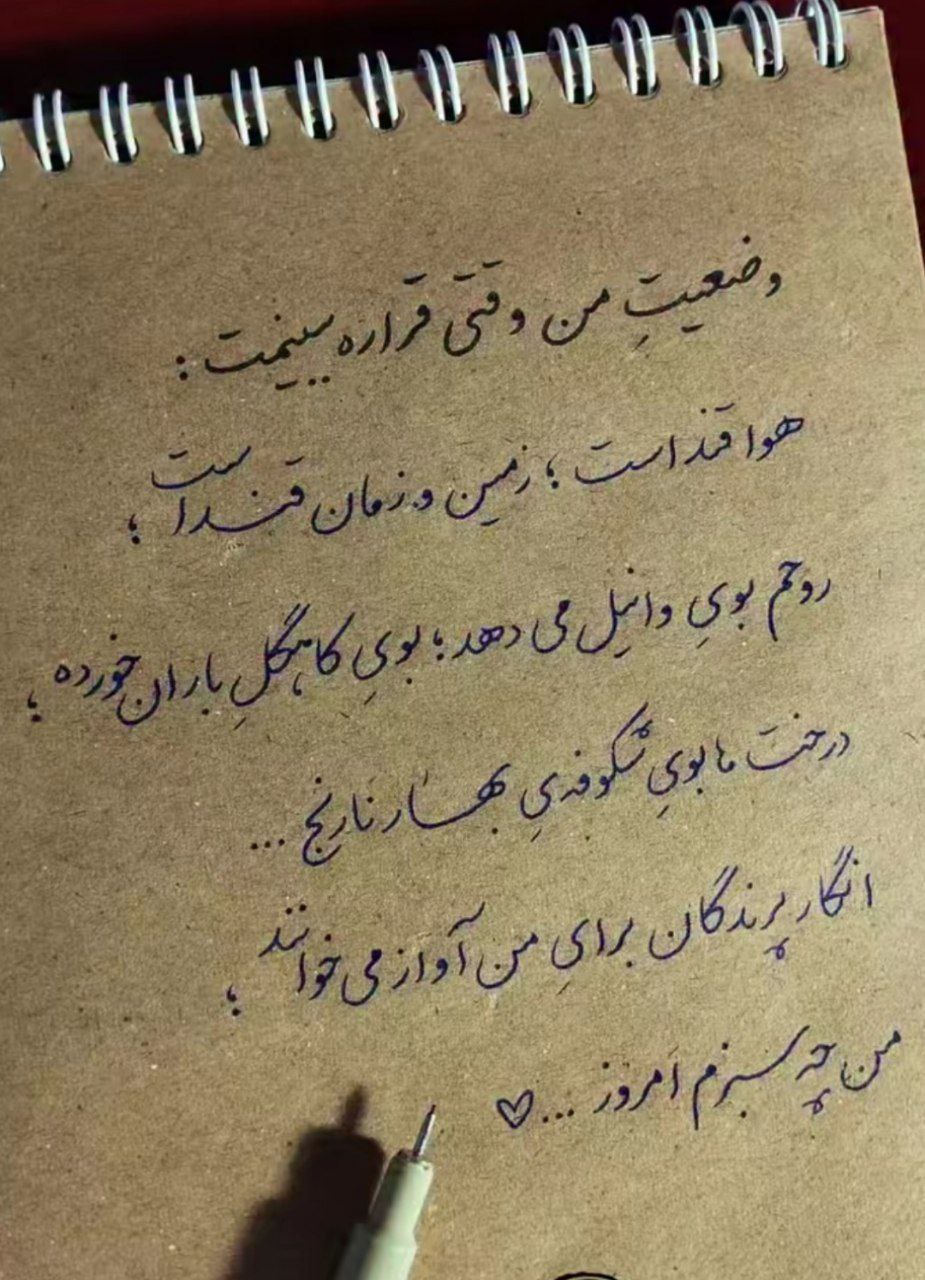 وضعیتِ من وقتی قراره ببینمت :
هوا قند است ؛ زمین و زمان قند است ؛
روحم بویِ وانیل می دهد ؛ بویِ کاهگلِ باران خورده ؛
درخت ما بویِ شکوفه‌یِ بهار نارنج ...
انگار پرندگان برایِ من آواز می خوانند ؛
من چه سبزم امروز ... ♡